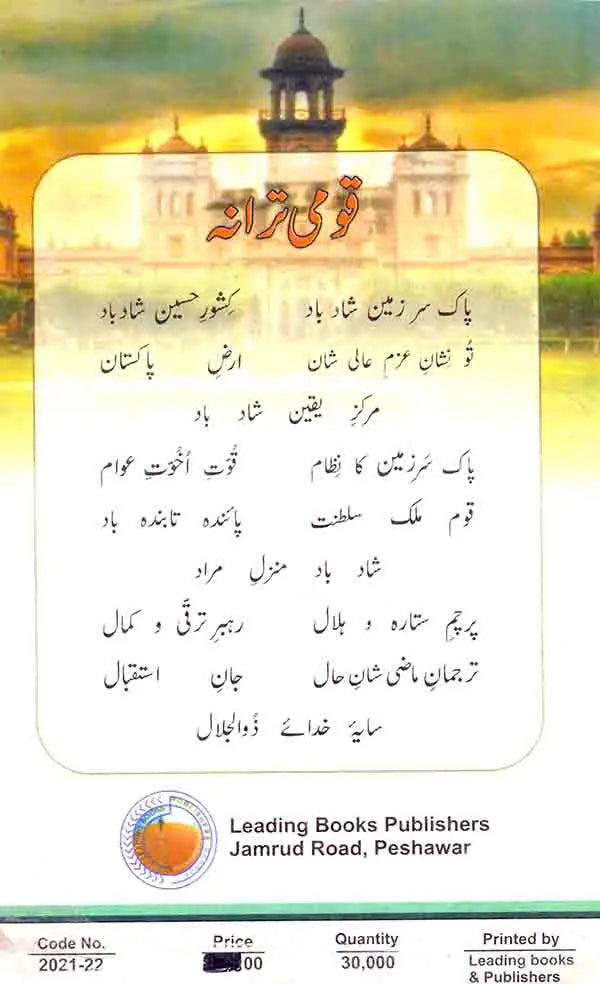 قومی ترانہ
پاک سرزمین شاد باد کِشورِ حسین شاد باد
تُو نِشانِ عزمِ عالی شان ارضِ پاکستان
مرکزِ یقین شاد باد
پاک سَرزمین کا نِظام قُوّتِ اُخُوّتِ عوام
قوم ملک سلطنت پائندہ تابندہ باد
شاد باد منزلِ مراد
پرچمِ ستارہ و ہلال رہبرِ ترقّی و کمال
ترجمانِ ماضی شانِ حال جانِ استقبال
سایۂ خدائے ذُوالجلال
Leading Books Publishers
Jamrud Road, Peshawar
Code No. Price Quantity Printed by
2021-22 00 30,000 Leading books
& Publishers